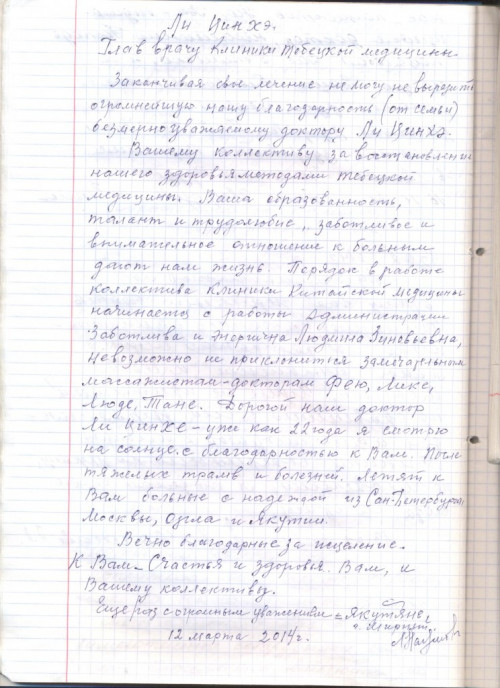 Ли Цинхэ.
Глав врачу Клиники Тебецкой медицины.
Заканчивая свое лечение не могу не выразить
огромнейшую нашу благодарность (от семьи)
безмерно уважаемому доктору Ли Цинхэ.
Вашему коллективу за восстановление
нашего здоровья методами тебецкой
медицины. Ваша образованность,
талант и трудолюбие, заботливое и
внимательное отношение к больным
дают нам жизнь. Порядок в работе
коллектива Клиники Китайской медицины
начинается с работы Администрации
Заботлива и Энергична Людмила Зиновьевна,
Невозможно не приклонится замечательным
массажистам-докторам Фею, Лике,
Люде, Тане. Дорогой наш доктор
Ли ЦинХЕ - уже как 22 года я смотрю
на солнце с благодарностью к Вам. После
тяжелых травм и болезней. Летят к
Вам больные с надеждой из Сан-Петербурга
Москвы, Орла и Якутии.
Вечно благодарные за исцеление.
К Вам - Счастья и здоровья. Вам, и
Вашему коллективу.
Еще раз с огромным уважением - Якутяне,
12 марта 2014г.